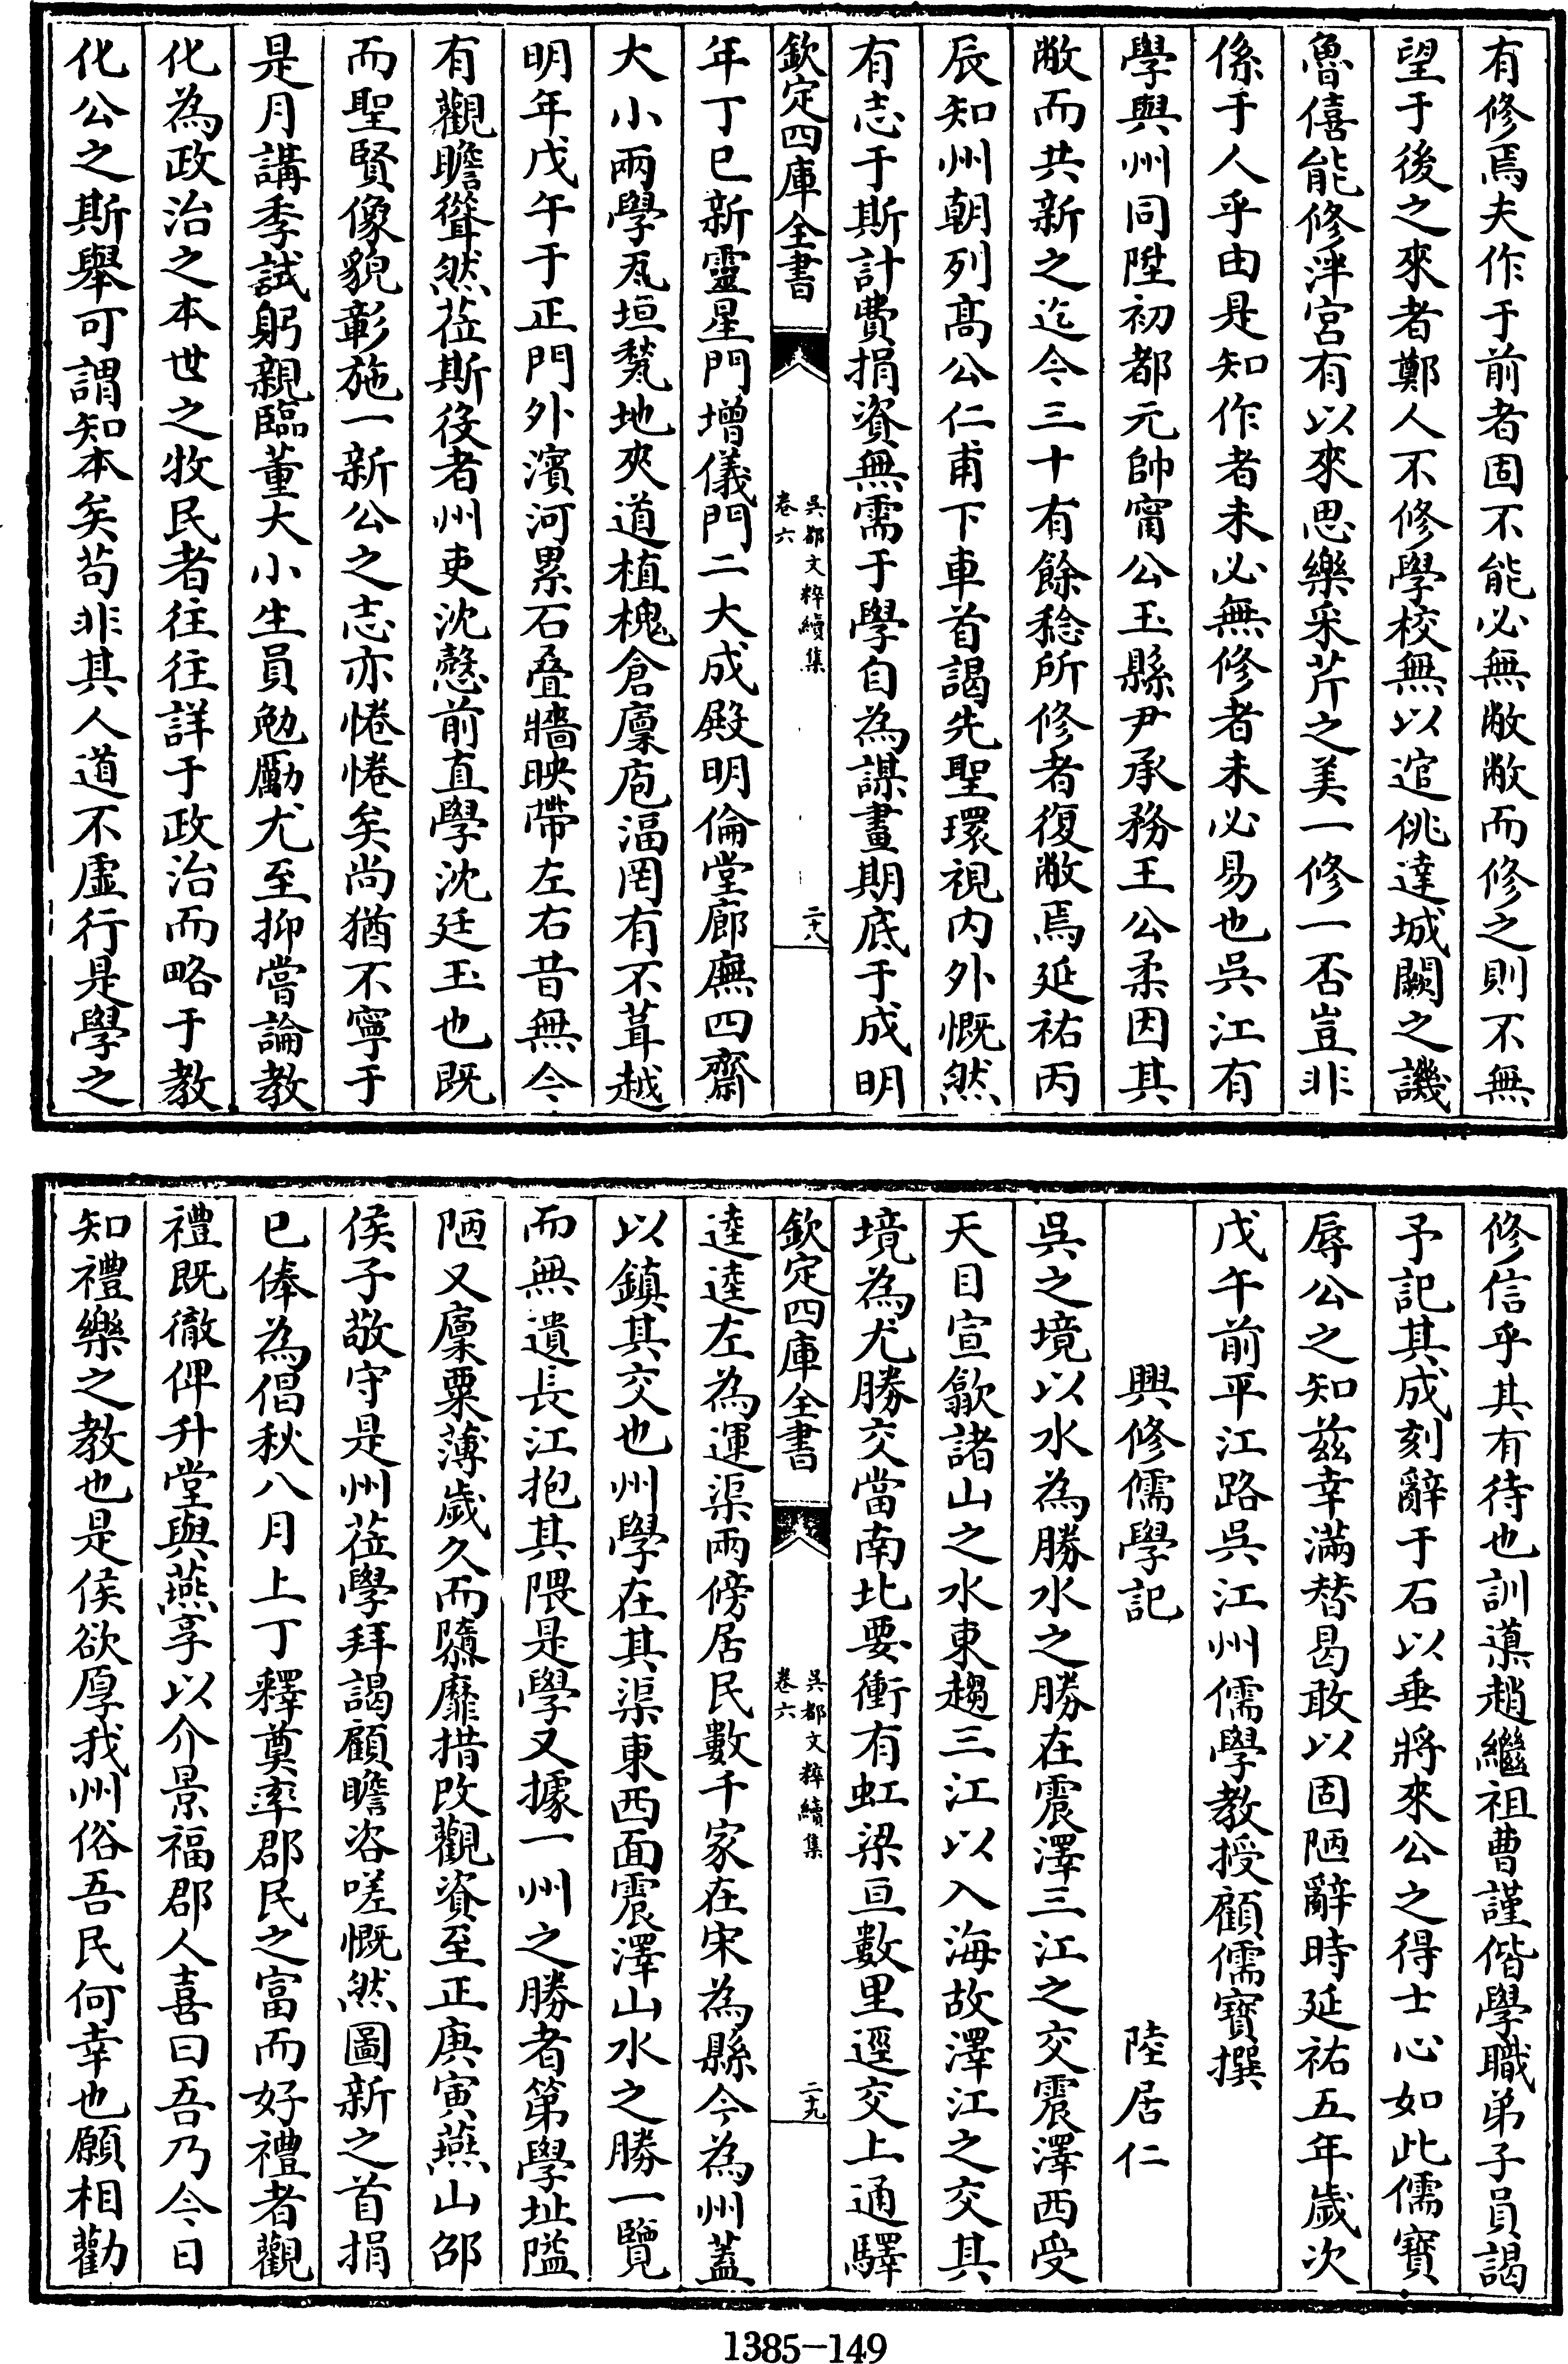 有修焉夫作于前者固不能必無敝敝而修之則不無
望于後之來者鄭人不修學校無以逭佻達城闕之譏
魯僖能修泮宮有以來思樂采芹之美一修一否豈非
係于人乎由是知作者未必無修者未必易也吳江有
學與州同陞初都元帥甯公玉縣尹承務王公柔因其
敝而共新之迄今三十有餘稔所修者復敝焉延祐丙
辰知州朝列高公仁甫下車首謁先聖環視内外慨然
有志于斯計費捐資無需于學自為謀畫期底于成明
欽定四庫全書
吳都文粹續集
卷六
二十八
年丁巳新靈星門增儀門二大成殿明倫堂廊廡四齋
大小兩學瓦垣甃地夾道植槐倉廩庖湢罔有不葺越
明年戊午于正門外濱河累石叠牆映帶左右昔無今
有觀瞻聳然莅斯役者州吏沈慤前直學沈廷玉也既
而聖賢像貌彰施一新公之志亦惓惓矣尚猶不寧于
是月講季試躬親臨董大小生員勉勵尤至抑嘗論教
化為政治之本世之牧民者往往詳于政治而略于教
化公之斯舉可謂知本矣苟非其人道不虛行是學之
修信乎其有待也訓導趙繼祖曹謹偕學職弟子員謁
予記其成刻辭于石以垂將來公之得士心如此儒寶
辱公之知茲幸滿替曷敢以固陋辭時延祐五年歲次
戊午前平江路吳江州儒學教授顧儒寶撰
興修儒學記
陸居仁
吳之境以水為勝水之勝在震澤三江之交震澤西受
天目宣歙諸山之水東趨三江以入海故澤江之交其
境為尤勝交當南北要衝有虹梁亘數里逕交上通驛
欽定四庫全書
吳都文粹續集
卷六
二十九
逵逵左為運渠兩傍居民數千家在宋為縣今為州蓋
以鎮其交也州學在其渠東西面震澤山水之勝一覽
而無遺長江抱其隈是學又據一州之勝者第學址隘
陋又廩粟薄歲久而隳靡措改觀資至正庚寅燕山邵
侯子敬守是州莅學拜謁顧瞻咨嗟慨然圖新之首捐
已俸為倡秋八月上丁釋奠率郡民之富而好禮者觀
禮既徹俾升堂與燕享以介景福郡人喜曰吾乃今日
知禮樂之教也是侯欲厚我州俗吾民何幸也願相勸
1385-149